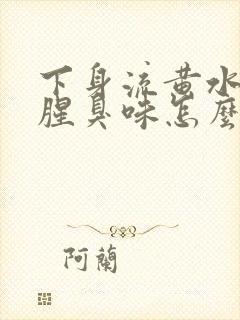 下身流黄水
腥臭味怎麼
阿蘭